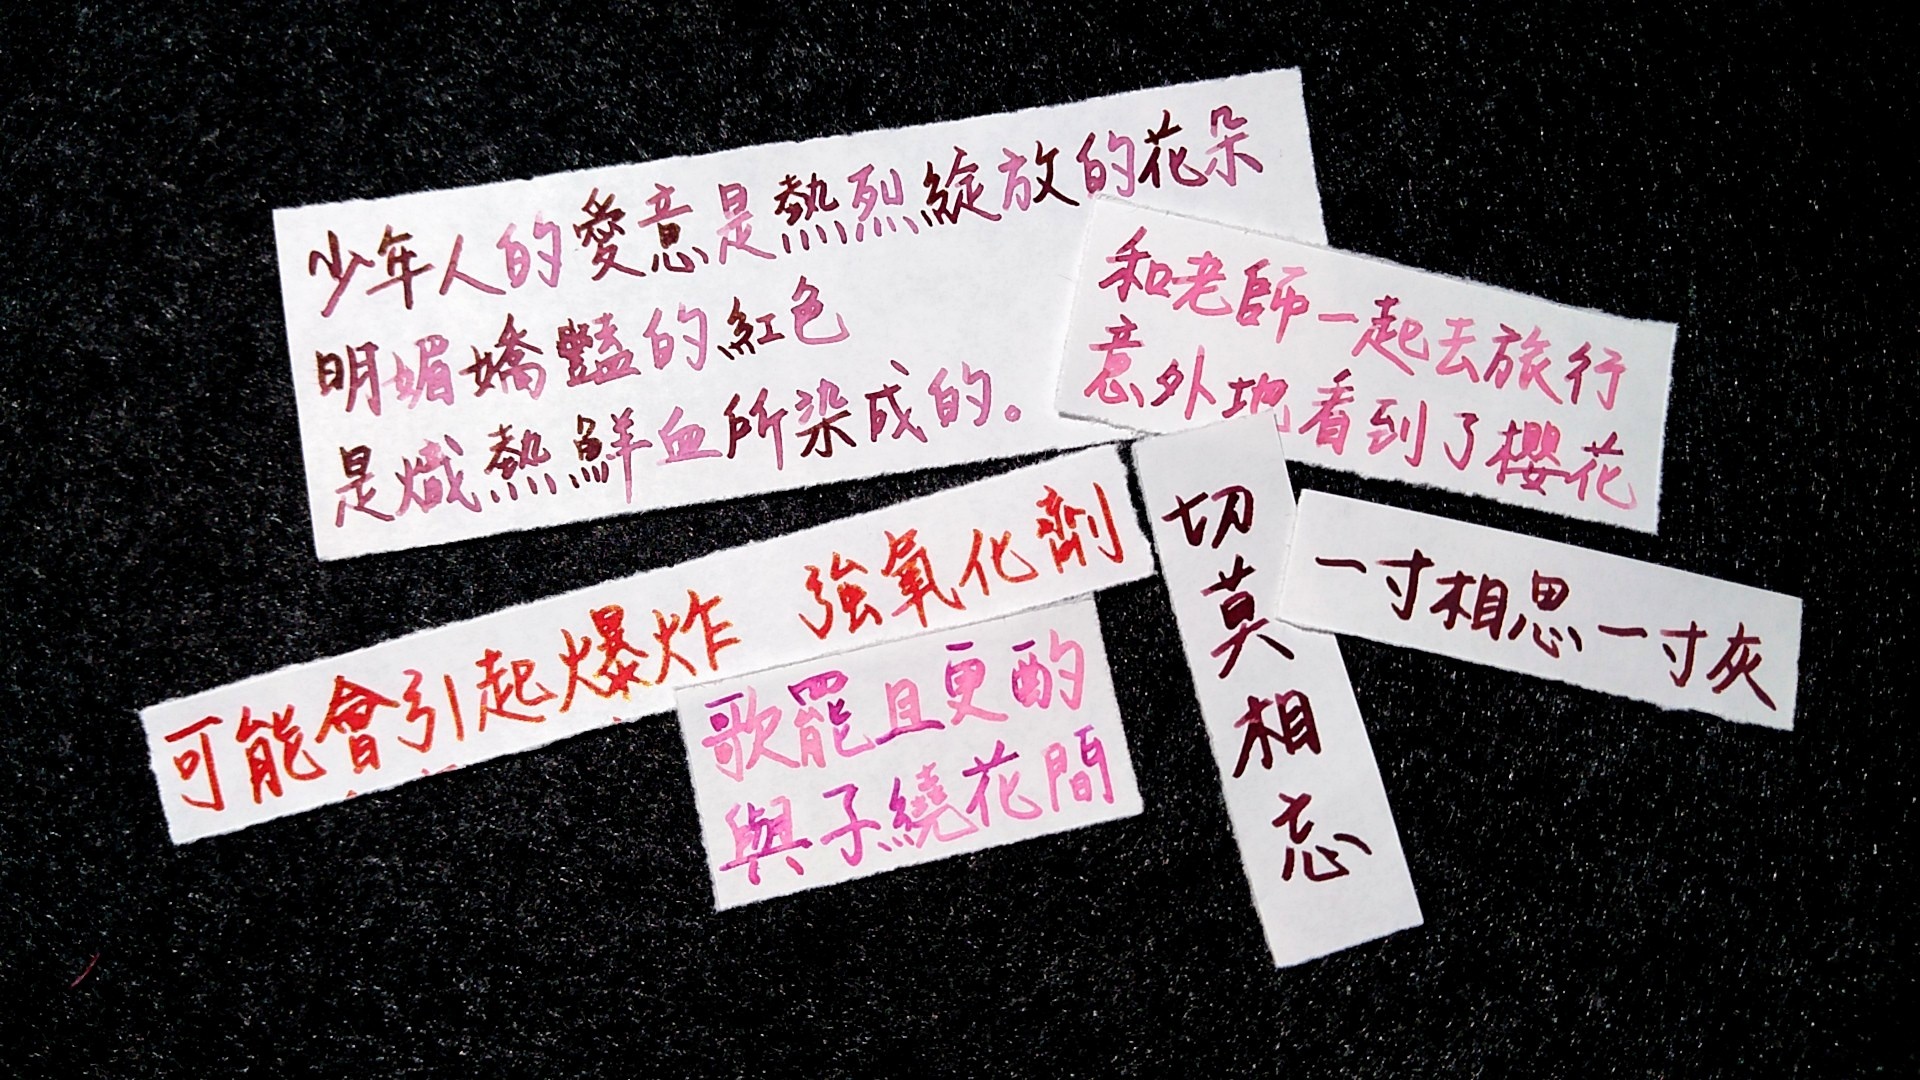 少年人的愛意是熱烈綻放的花朵
明媚嬌豔的紅色
是熾熱鮮血所染成的。
和老師一起去旅行
意外地看到了櫻花
可能會引起爆炸 強氧化劑
歌罷且更酌
與子繞花間
切莫相忘
一寸相思一寸灰